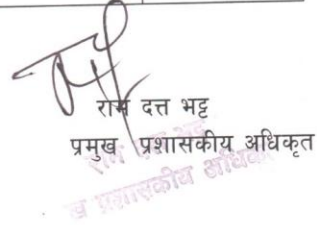 राम दत्त भट्ट
प्रमुख प्रशासकीय अधिकृत